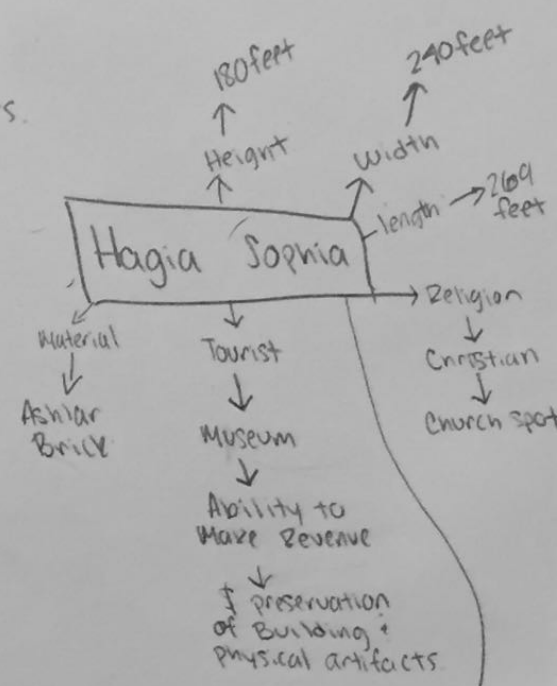 s.
180 feet
Height
240 feet
Width
length
269
feet
Hagia Sophia
Religion
Christian
Church spot
Material
Ashlar
Brick
Tourist
Museum
Ability to
Make Revenue
$ preservation
of Building &
Physical artifacts